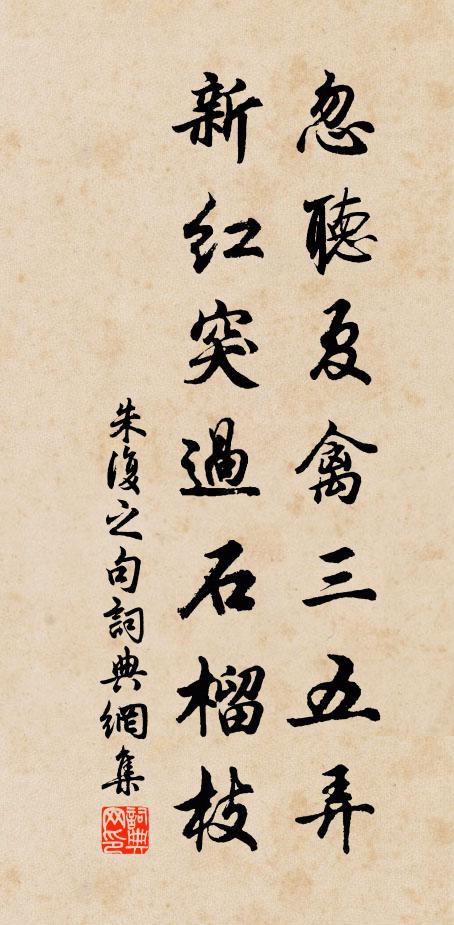 忽聽夏禽三五弄
新紅突過石榴枝
朱復之句詞典網集
詞典网印